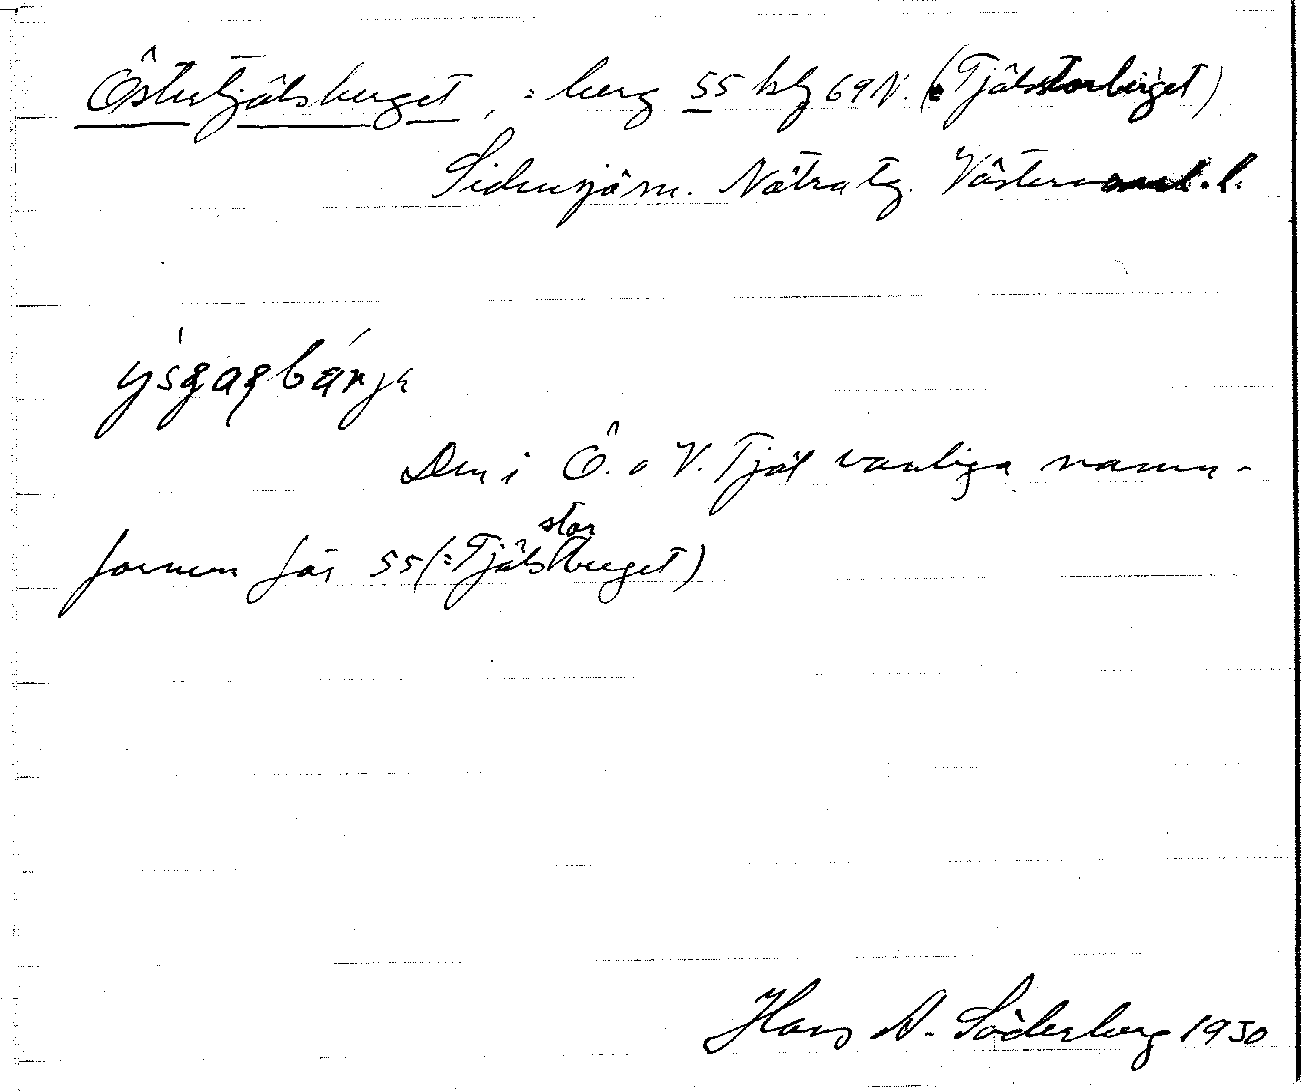 Östertjälsberget, = berg 55 blg 69 N. (= Tjälstorberget)
Sidensjö sn. Nätra tg. Västern. l.
Den i Ö. o V. Tjäl vanliga namn-
formen för 55 (= Tjälstorberget)
Hans A. Söderberg 1930